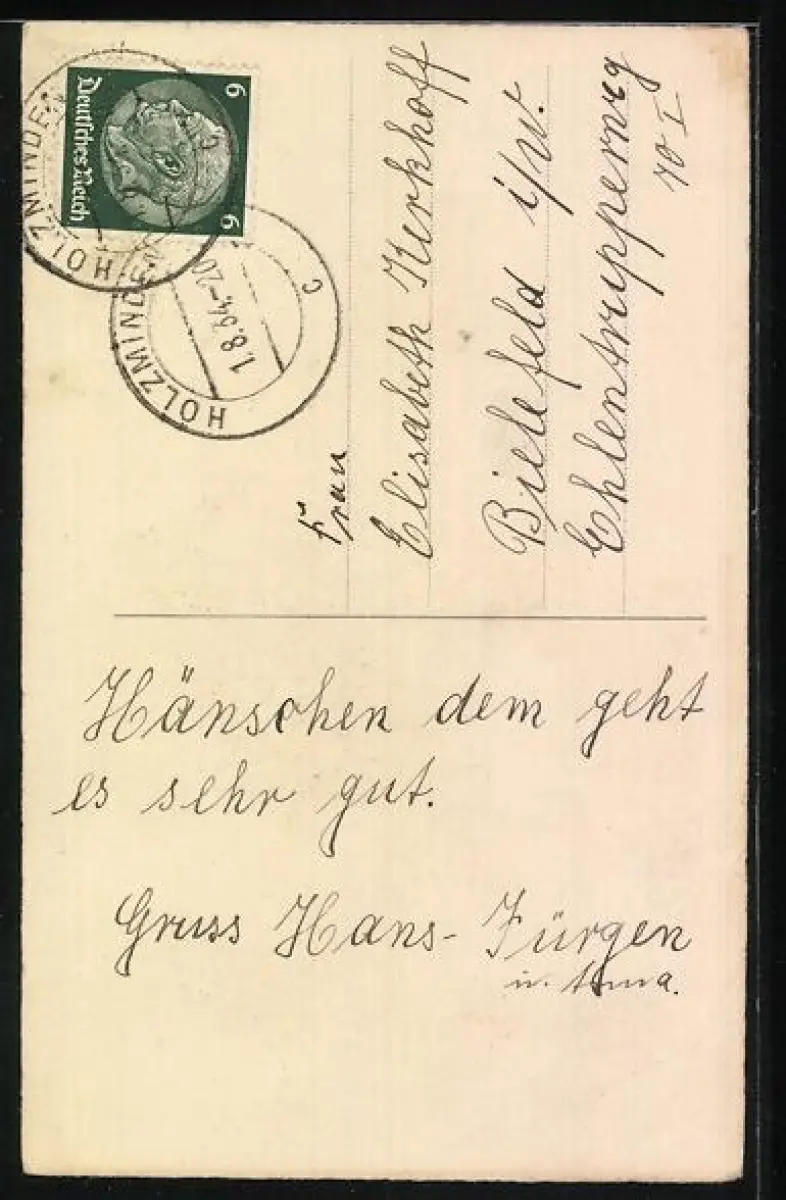 6 Deutsches Reich 6
HOLZMINDEN
HOLZMINDEN
1.8.34.-20
c
Frau
Elisabeth Kerkhoff
Bielefeld i/W.
Ehlentrupperweg
70 I
Hänschen dem geht
es sehr gut.
Gruss Hans-Jürgen
u. Anna.